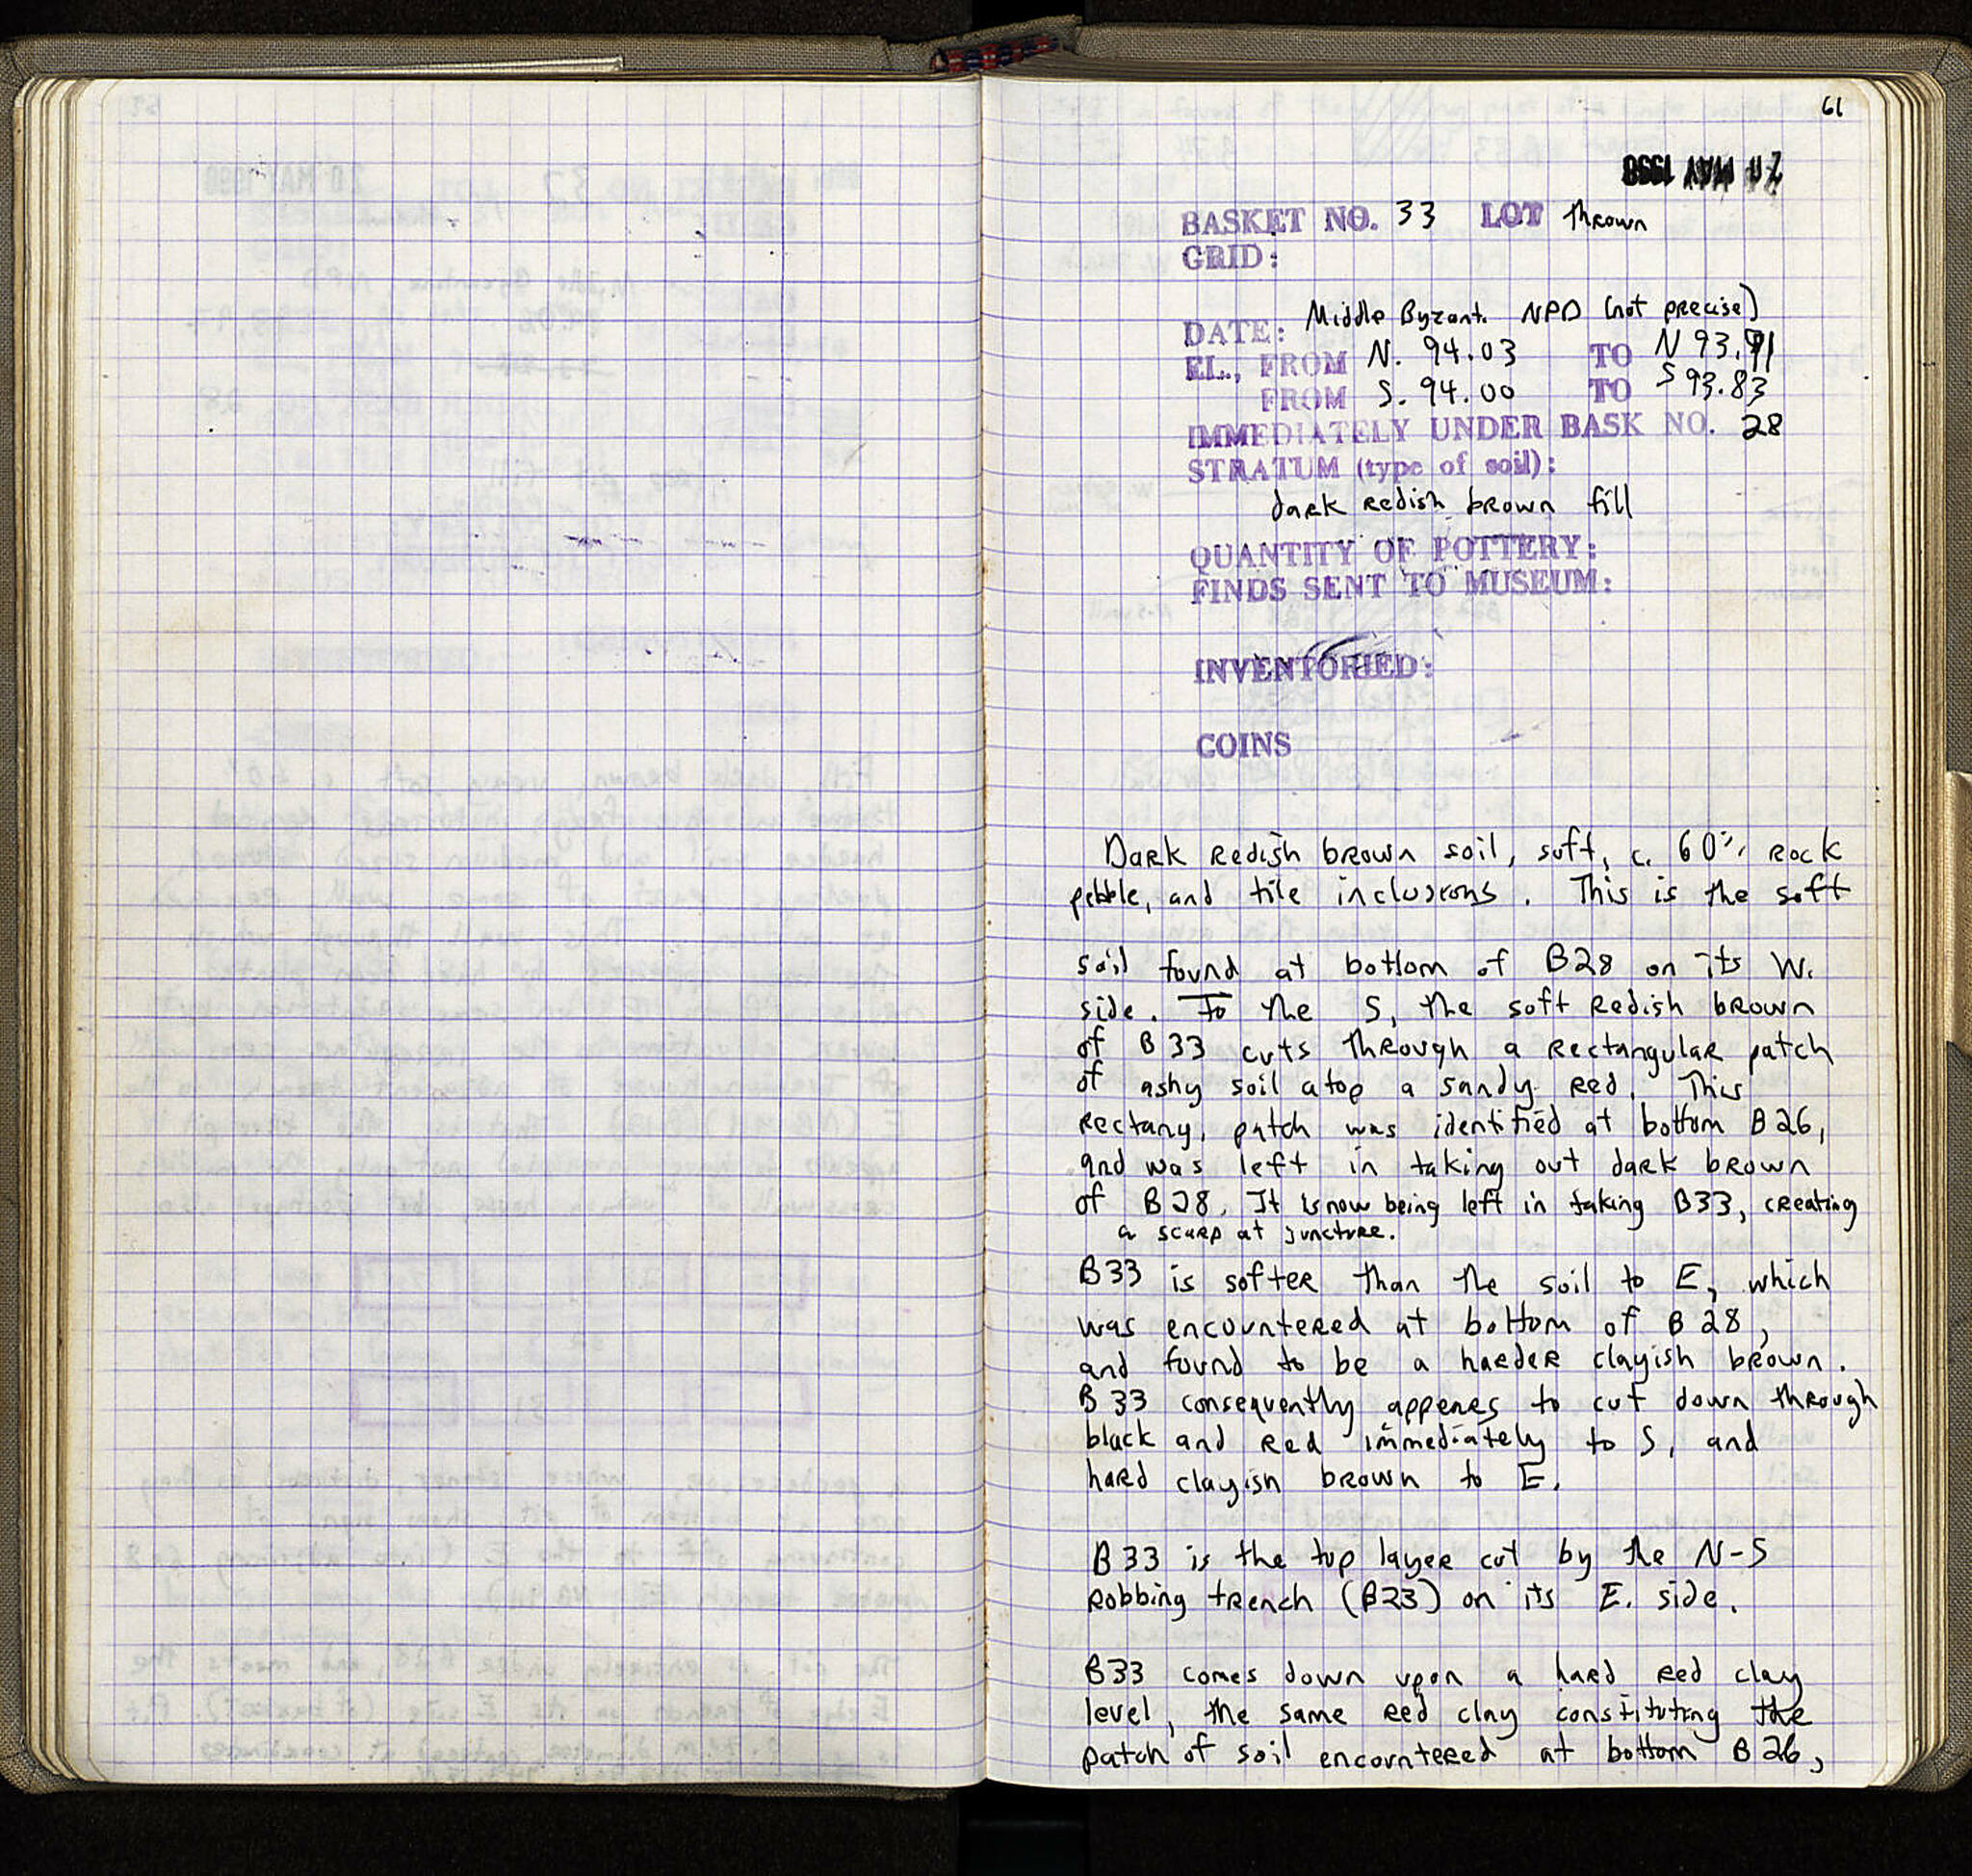 61
20 MAY 1990
BASKET NO. 33 LOT thrown
GRID:
DATE: Middle Byzant. NPD (not precise)
EL., FROM N. 94.03 TO N 93.91
FROM S. 94.00 TO S 93.83
IMMEDIATELY UNDER BASK NO. 28
STRATUM (type of soil):
dark redish brown fill
QUANTITY OF POTTERY:
FINDS SENT TO MUSEUM:
INVENTORIED:
COINS
Dark redish brown soil, soft, c. 60% rock
pebble, and tile inclusions. This is the soft
soil found at bottom of B28 on its W.
side. To the S, the soft redish brown
of B33 cuts through a rectangular patch
of ashy soil atop a sandy red. This
rectang. patch was identified at bottom B26,
and was left in taking out dark brown
of B28. It is now being left in taking B33, creating
a scarp at juncture.
B33 is softer than the soil to E, which
was encountered at bottom of B28,
and found to be a harder clayish brown.
B33 consequently appears to cut down through
black and red immediately to S, and
hard clayish brown to E.
B33 is the top layer cut by the N-S
robbing trench (B23) on its E. side.
B33 comes down upon a hard red clay
level, the same red clay constituting the
patch of soil encountered at bottom B26,